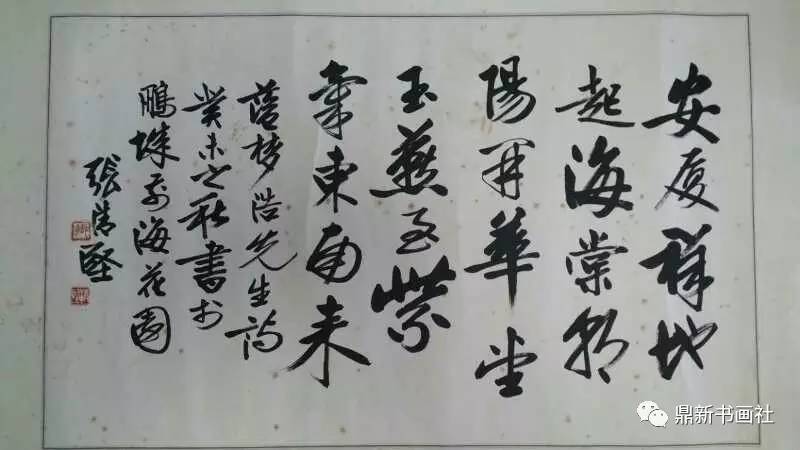 安厦祥地
起海棠朝
陽開華堂
玉燕至紫
氣東南来
梦浩先生詩
癸未之秋書於
鵬城前海花園
張堅
鼎新书画社